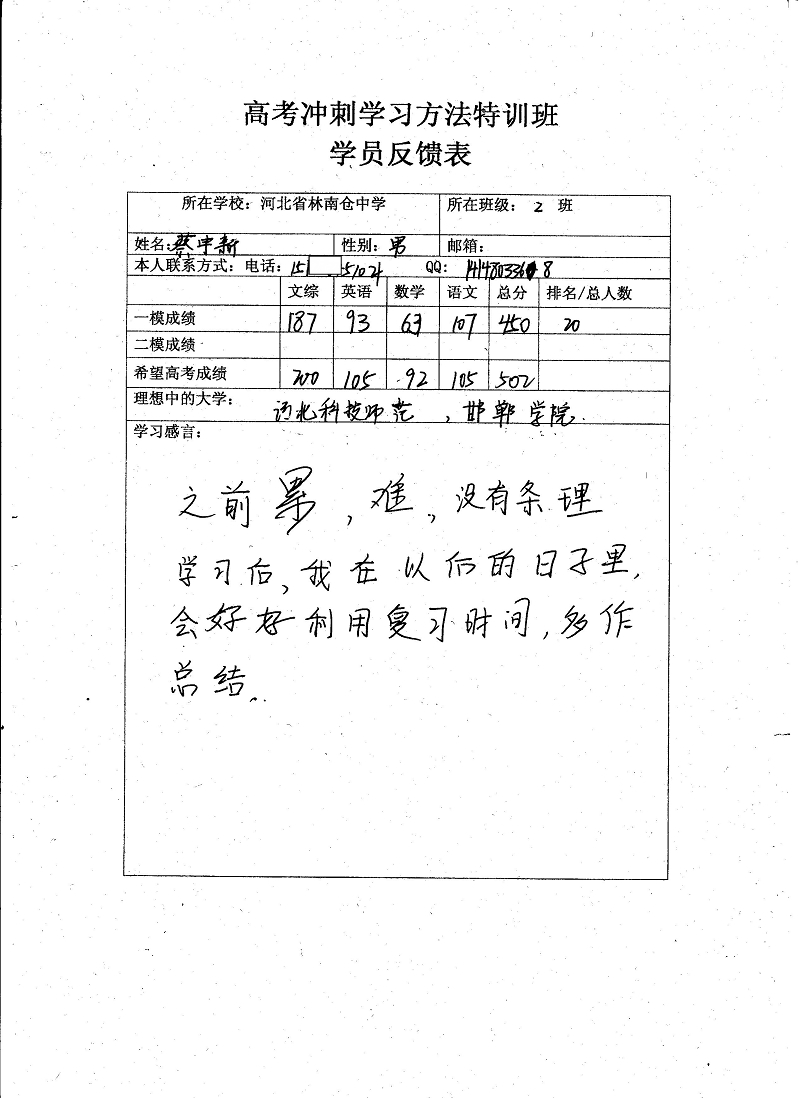 高考冲刺学习方法特训班
学员反馈表
所在学校：河北省林南仓中学 所在班级：2 班
姓名：蔡宇新 性别：男 邮箱：
本人联系方式：电话：151 5102 QQ：
文综 英语 数学 语文 总分 排名/总人数
一模成绩 187 93 63 107 450 20
二模成绩
希望高考成绩 200 105 92 105 502
理想中的大学：河北科技师范，邯郸学院.
学习感言：
之前累，难，没有条理
学习后，我在以后的日子里，
会好好利用复习时间，多作
总结.